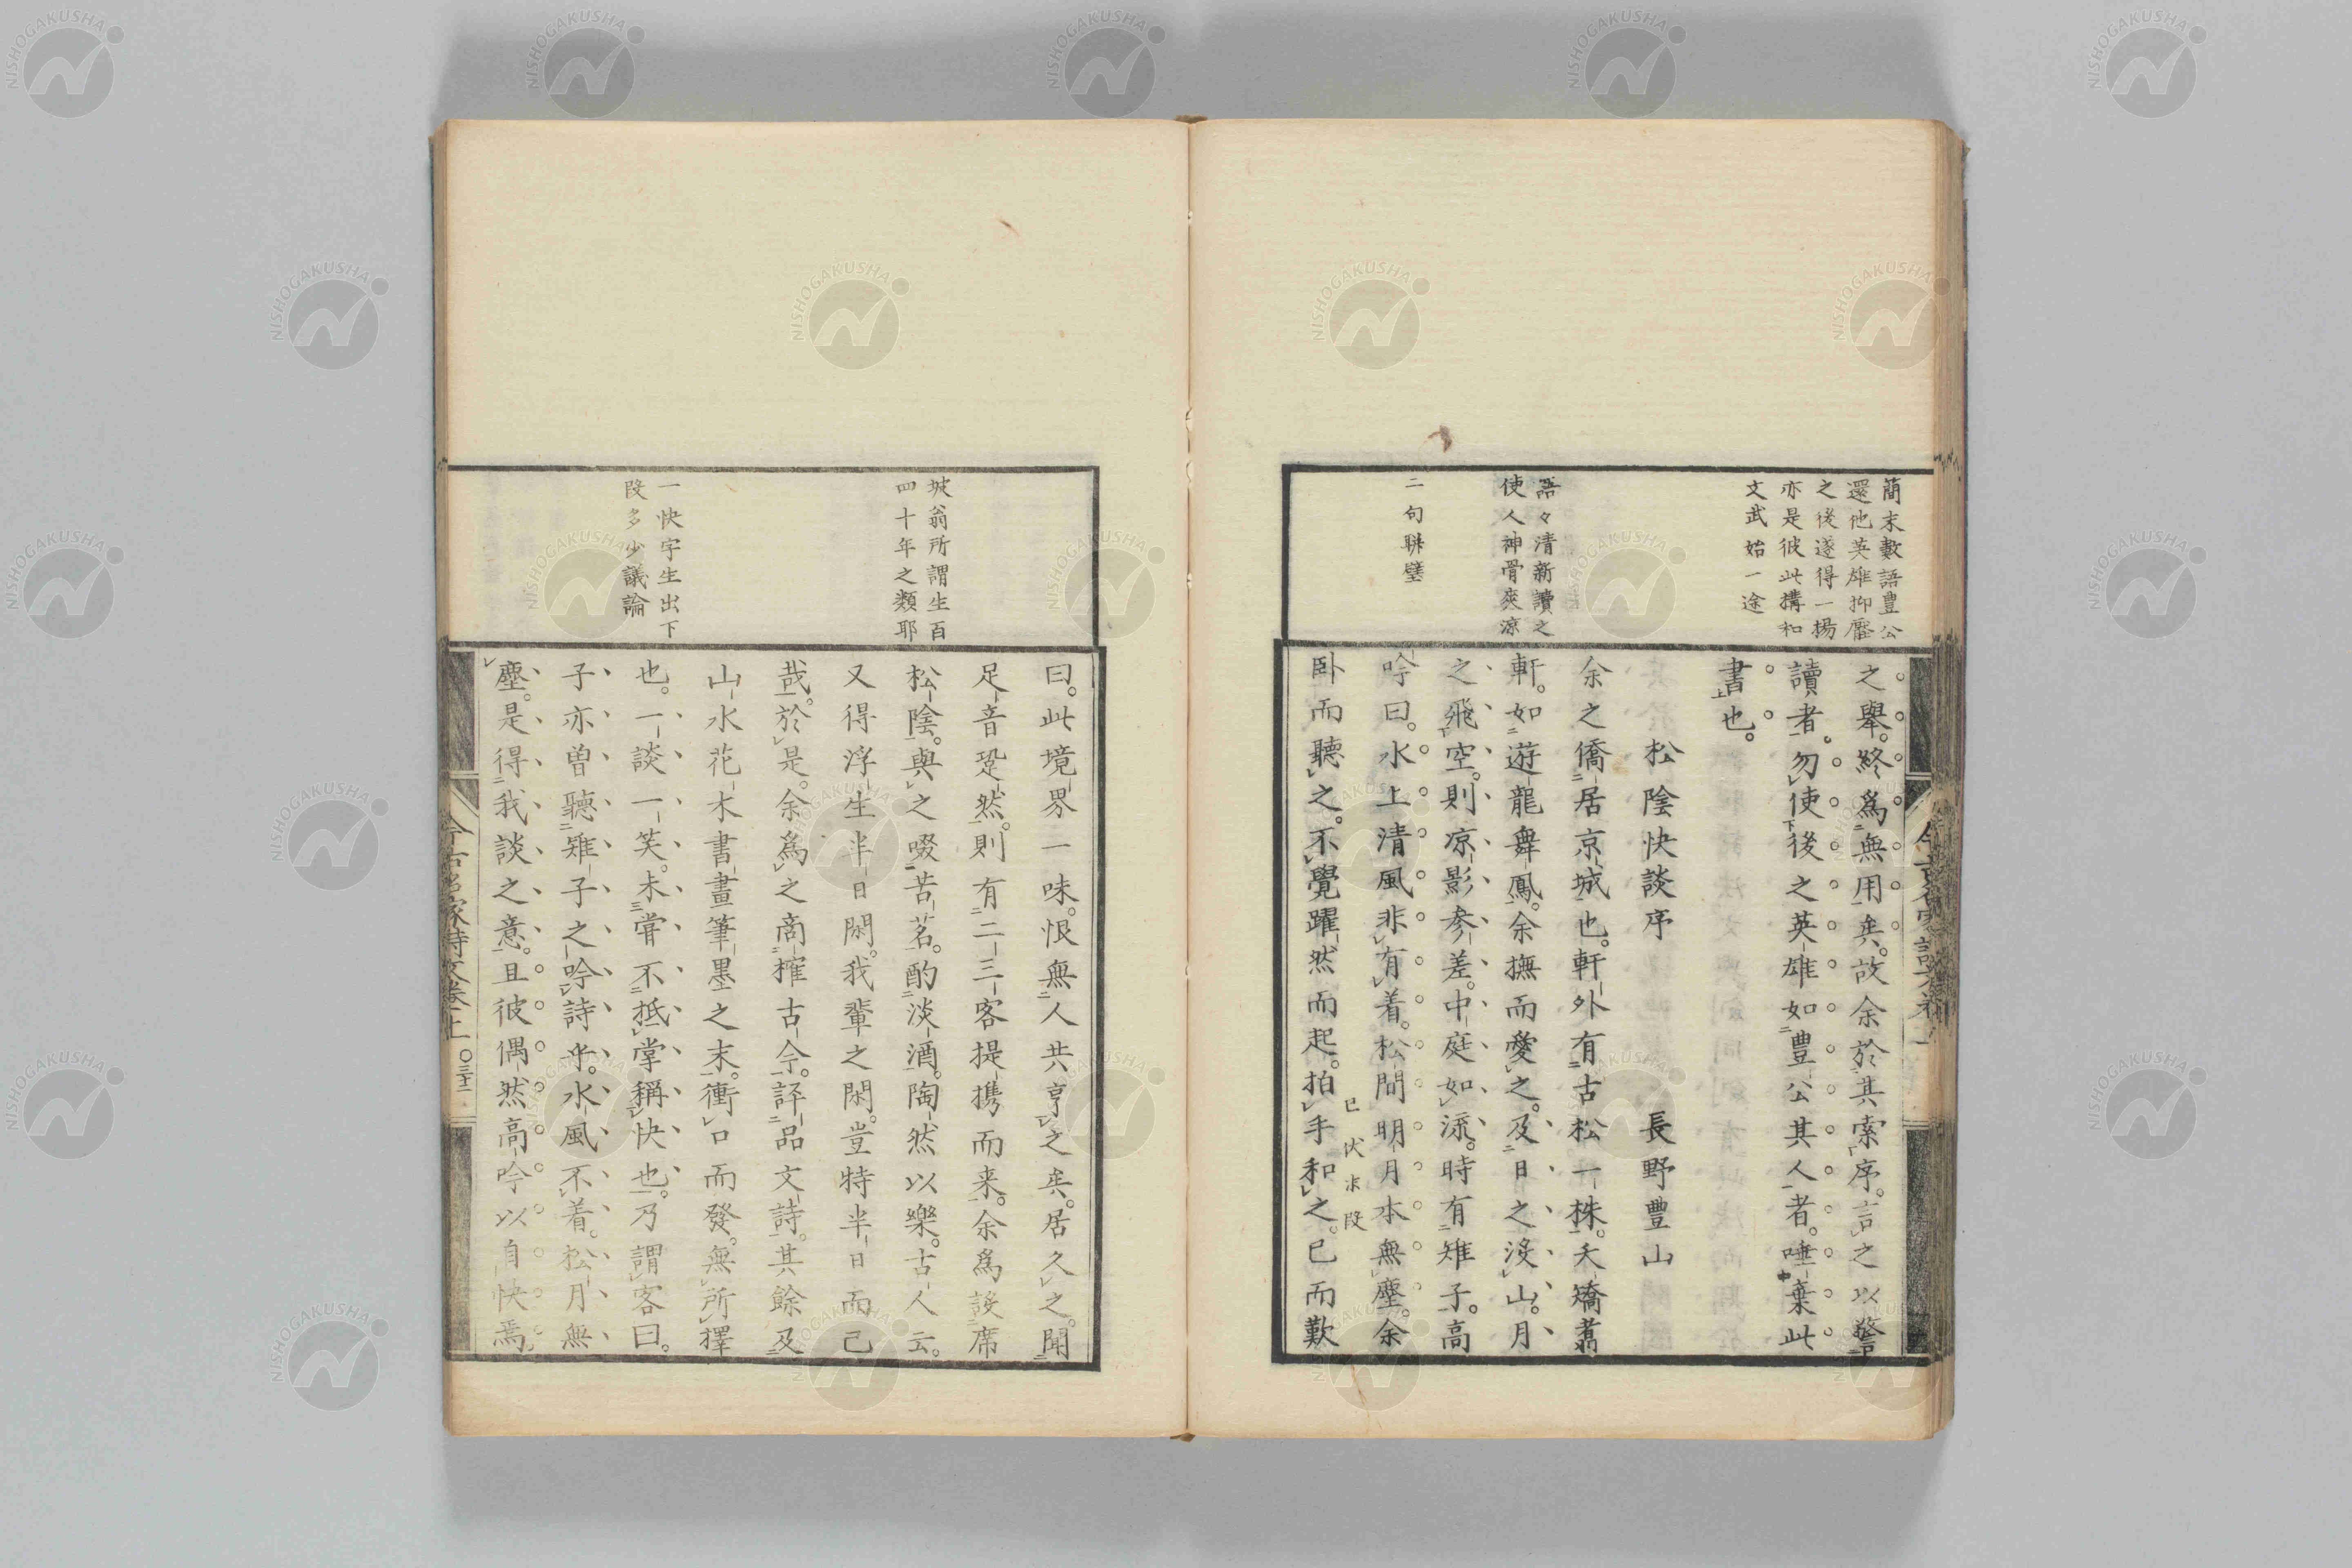 簡末數語豊公
還他英雄抑壓
之後遂得一揚
亦是彼此搆和
文武始一途
語々清新讀之
使人神骨爽凉
二句聯璧
之舉。終爲無用矣。故余於其索序。言之以警
讀者。勿使後之英雄如豊公其人者。唾棄此
書也。
松陰快談序　長野豊山
余之僑居京城也。軒外有古松一株。夭矯翥
軒。如遊龍舞鳳。余撫而愛之。及日之沒山。月
之飛空。則凉影參差。中庭如流。時有雉子。高
吟曰。水上清風非有着。松間明月本無塵。余
已伏末段
卧而聽之。不覺躍然而起。拍手和之。已而歎
坡翁所謂生百
四十年之類耶
一快字生出下
段多少議論
曰。此境界一味。恨無人共享之矣。居久之。聞
足音跫然。則有二三客提携而来。余爲設席
松陰。與之啜苦茗。酌淡酒。陶然以樂。古人云。
又得浮生半日閑。我輩之閑。豈特半日而已
哉。於是。余爲之商搉古今。評品文詩。其餘及
山水花木書畫筆墨之末。衝口而發。無所擇
也。一談一笑。未甞不抵掌稱快也。乃謂客曰。
子亦曽聽雉子之吟詩乎。水風不着。松月無
塵。是得我談之意。且彼偶然高吟以自快焉。
今古名家詩文卷上　〇三十二